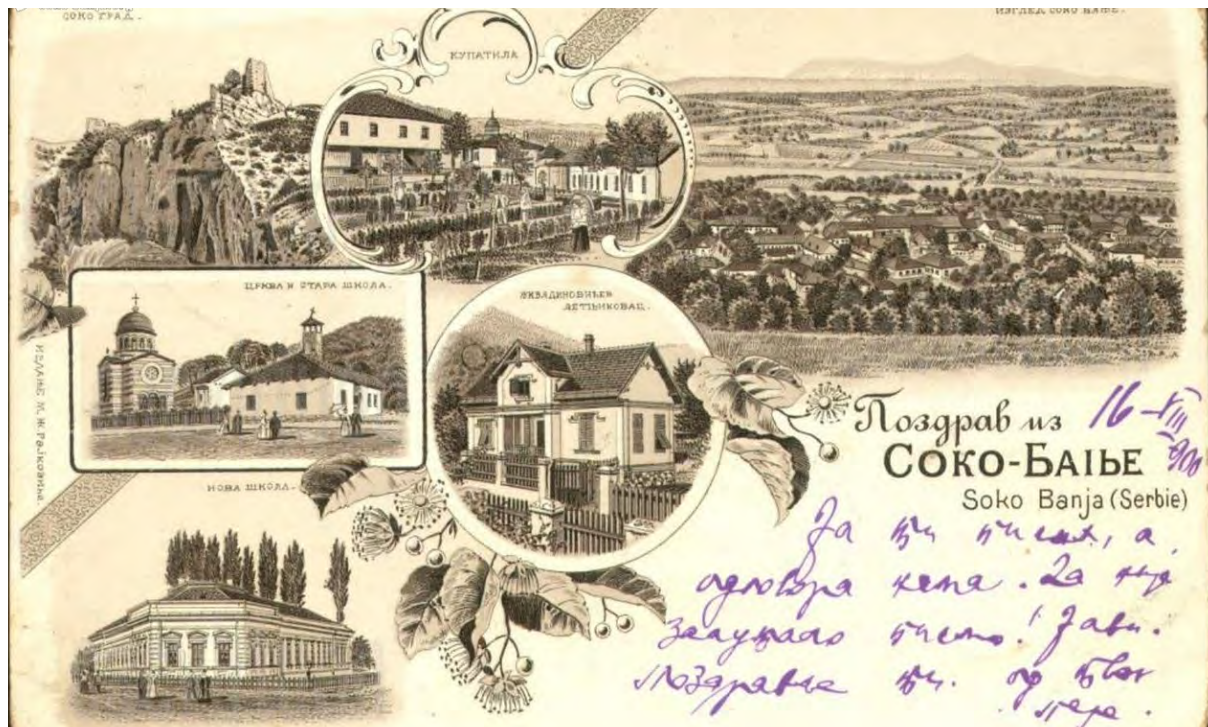 СОКО ГРАД.
КУПАТИЛА
ИЗГЛЕД СОКО БАЊЕ.
ЦРКВА И СТАРА ШКОЛА.
ЛЕТЊИКОВАЦ.
ИЗДАЊЕ М. Ж. РАЈКОВИЋА.
НОВА ШКОЛА.
Поздрав из
СОКО-БАЊЕ
Soko Banja (Serbie)
16-VIII
900
Ја ти писах, а
одговора нема. Да није
залутало писмо! Јави.
Поздравље ти. од твог
Пере.